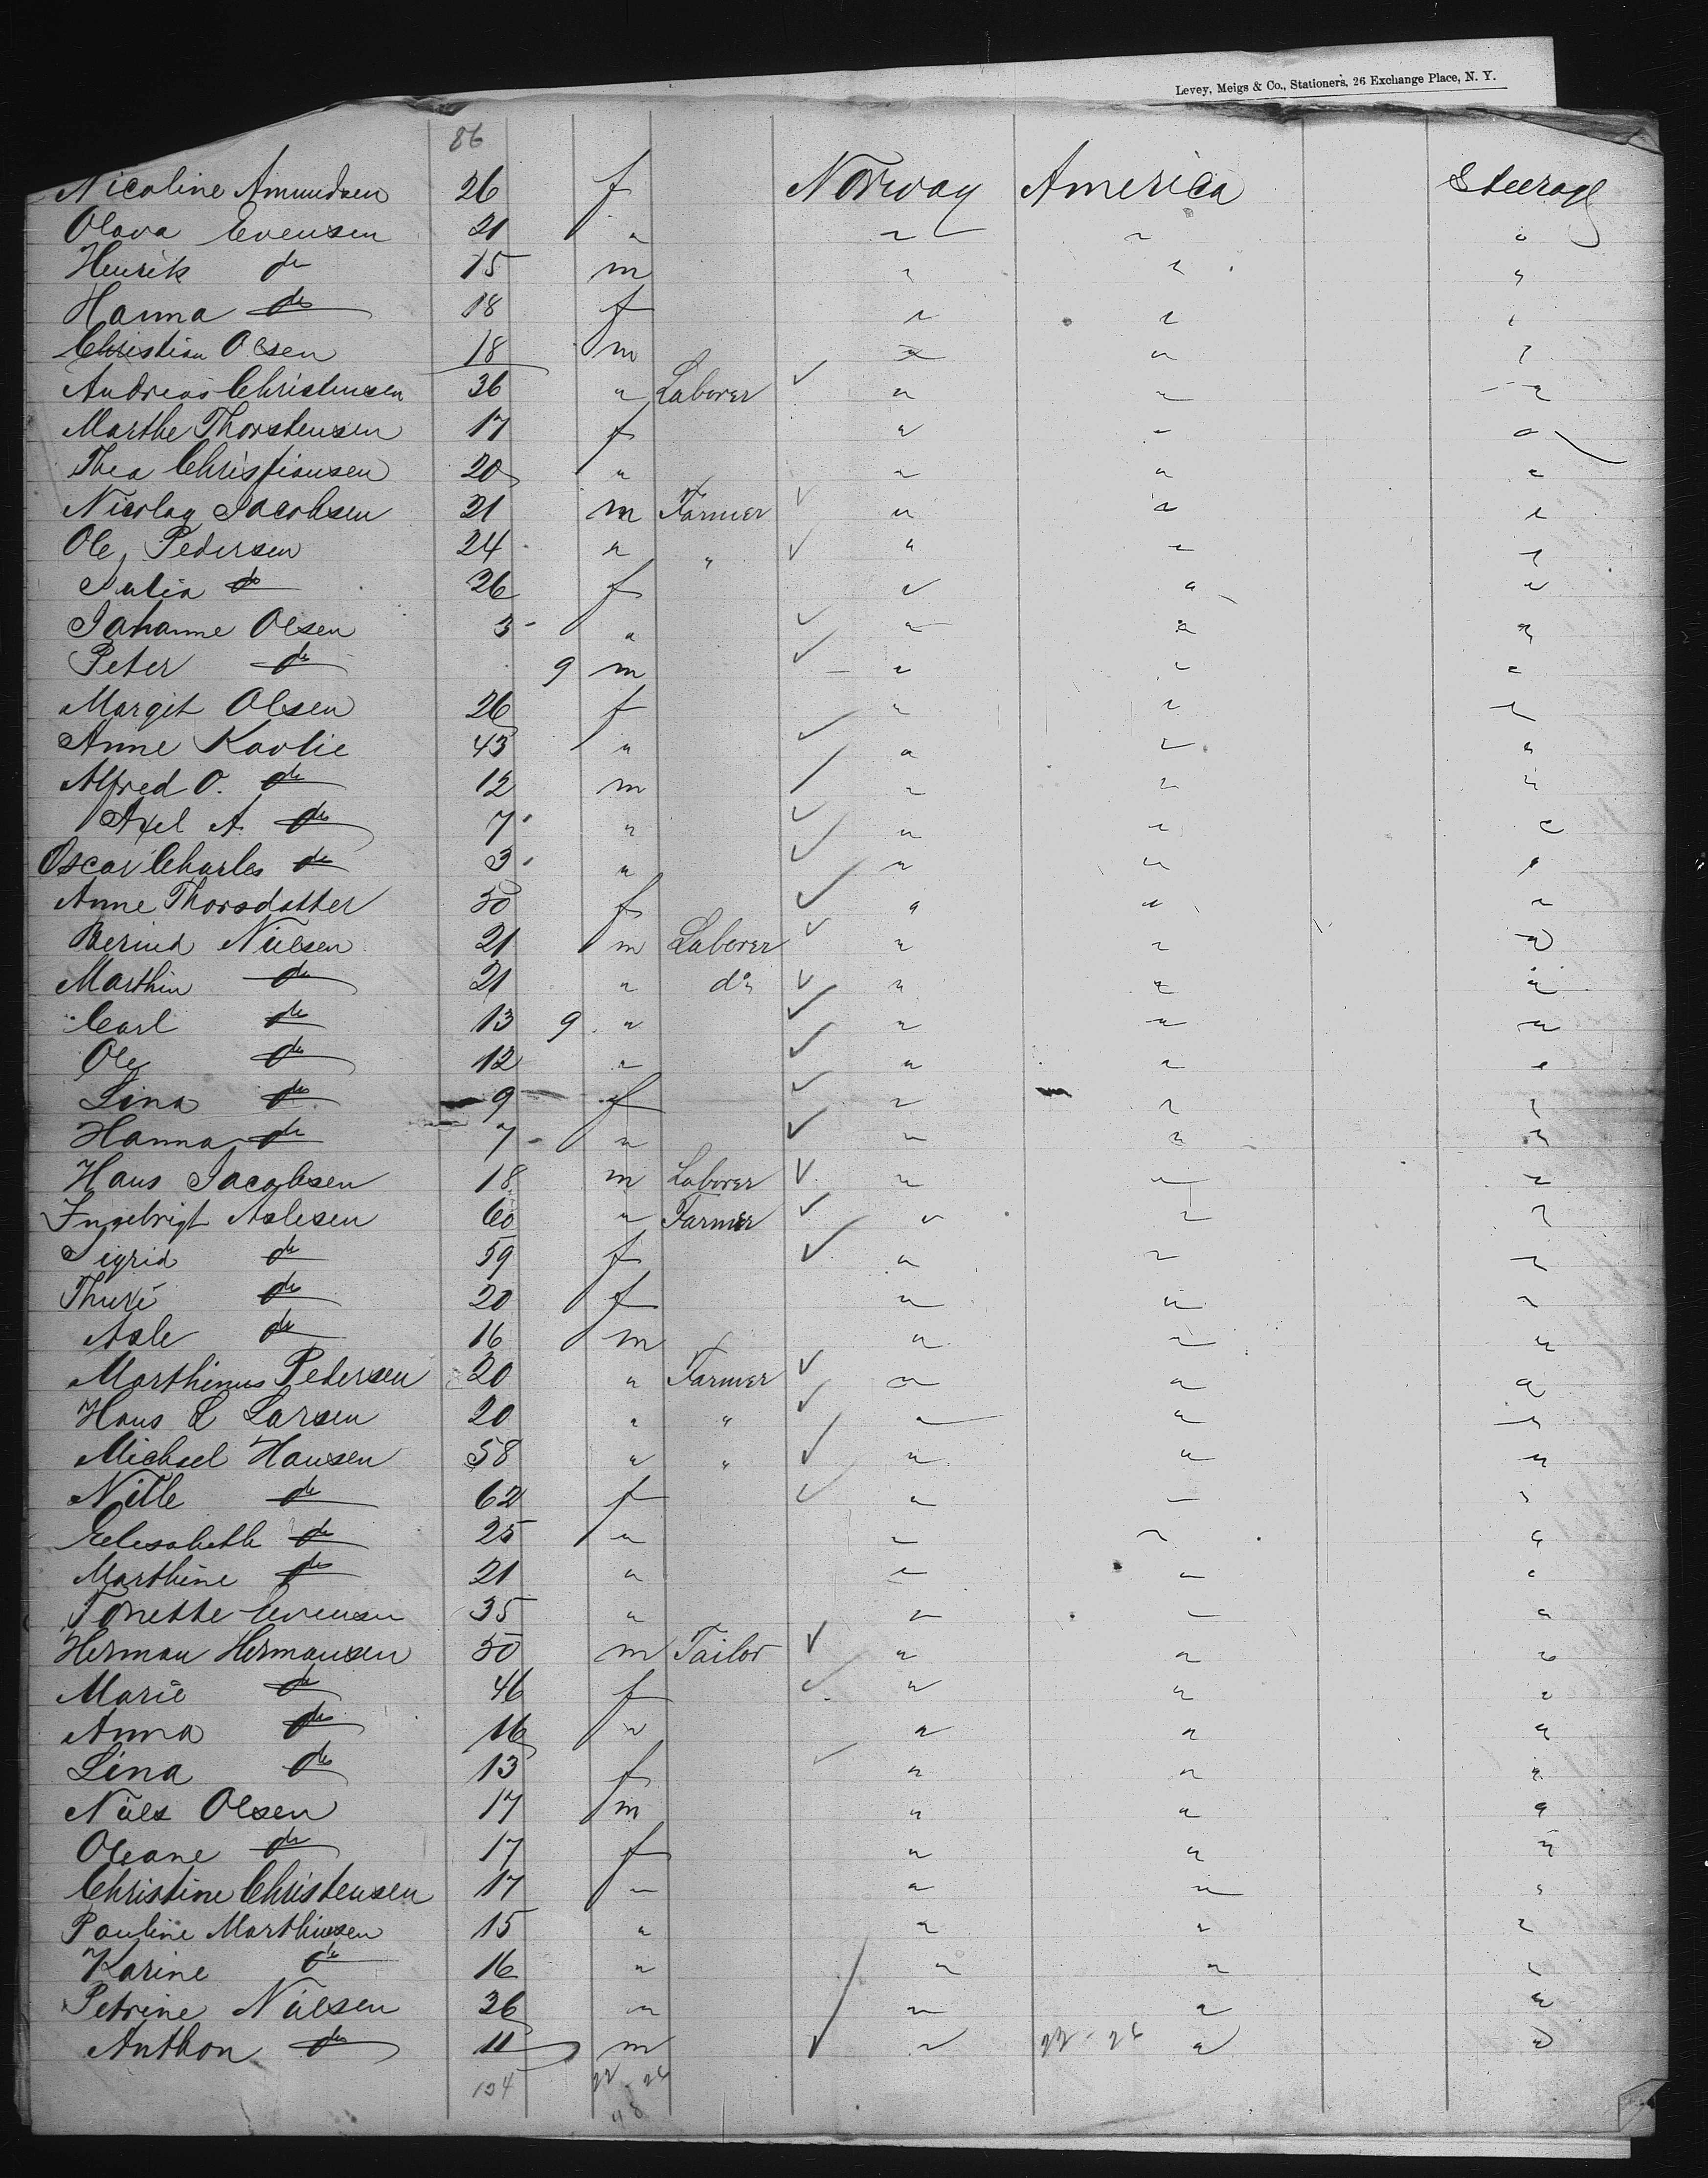 Levey, Meigs & Co., Stationers, 26 Exchange Place, N. Y.
86
Nicoline Amundsen 26 f Norway America Steerage
Olava Evensen 21 " " " "
Henrik do 15 m " " "
Hanna do 18 f " " "
Christian Olsen 18 m " " "
Andreas Christensen 36 " Laborer ✓ " " "
Marthe Thorstensen 17 f " " "
Thea Christiansen 20 " " " "
Nicolay Jacobsen 21 m Farmer ✓ " " "
Ole Pedersen 24 " " ✓ " " "
Julia do 26 f " " "
Johanne Olsen 3 " ✓ " " "
Peter do 9 m ✓ " " "
Margit Olsen 26 f " " "
Anne Kavlie 43 " ✓ " " "
Alfred O. do 12 m ✓ " " "
Axel A. do 7 " ✓ " " "
Oscar Charles do 3 " ✓ " " "
Anne Thorsdatter 50 f ✓ " " "
Bernied Nielsen 21 m Laborer ✓ " " "
Marthin do 21 " do ✓ " " "
Carl do 13 9 " ✓ " " "
Ole do 12 " ✓ " " "
Lina do 9 f ✓ " " "
Hanna do 7 " ✓ " " "
Hans Jacobsen 18 m Laborer ✓ " " "
Ingebrigt Aslesen 60 " Farmer ✓ " " "
Sigrid do 59 f ✓ " " "
Thuri do 20 f " " "
Asle do 16 m " " "
Marthinus Pedersen 20 " Farmer ✓ " " "
Hans L Larsen 20 " " ✓ " " "
Michael Hansen 58 " " ✓ " " "
Nille do 62 f ✓ " " "
Elisabeth do 25 " " " "
Marthine do 21 " " " "
Tonette Evensen 35 " " " "
Herman Hermansen 50 m Tailor ✓ " " "
Marie do 46 f ✓ " " "
Anna do 16 " " " "
Lina do 13 f ✓ " " "
Niels Olsen 17 m " " "
Oleane do 17 f " " "
Christine Christensen 17 " " " "
Pauline Marthinsen 15 " " " "
Karine do 16 " " " "
Petrine Nielsen 36 " ✓ " " "
Anthon do 11 m ✓ " 22-26 " "
134 22-26
48